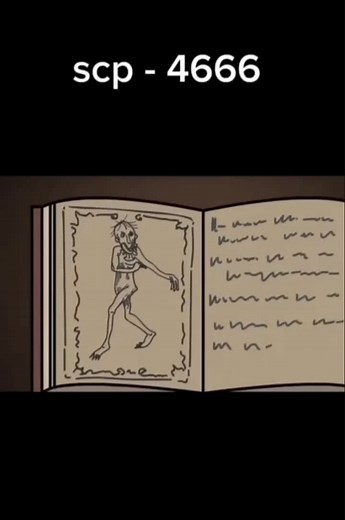 scp - 4666